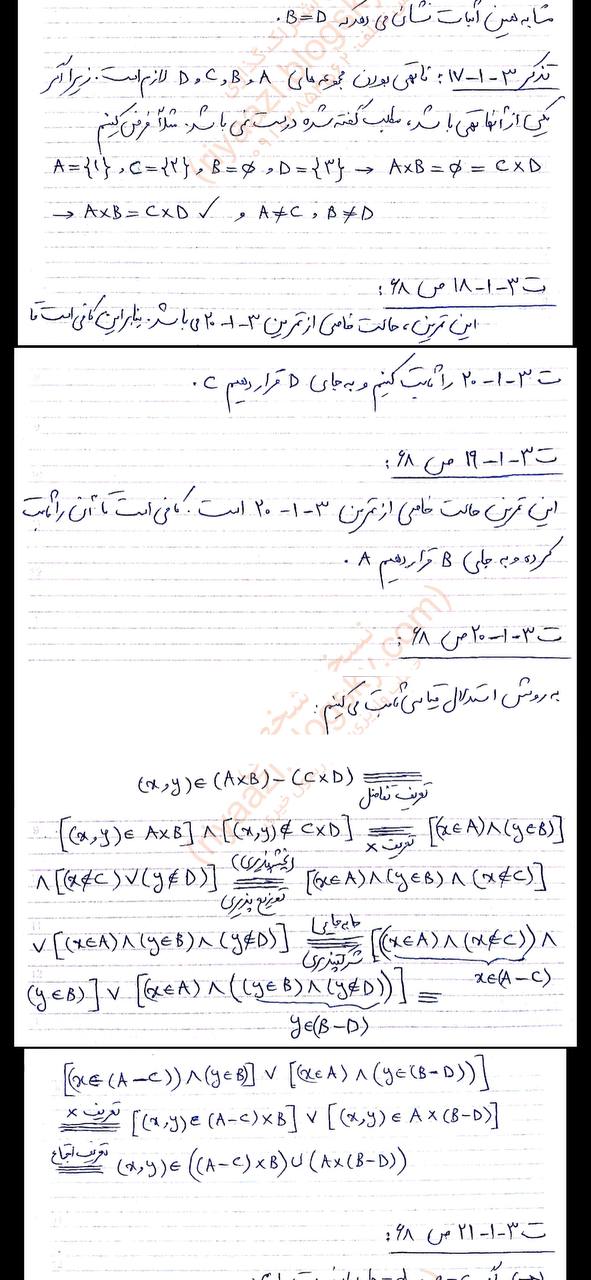 مشابه همین اثبات نشان می دهد که B=D.
تذکر ۳-۱-۱۷: ناتهی بودن مجموعه های A ,B ,C ,D لازم است. زیرا اگر
یکی از آنها تهی باشد، مطلب گفته شده درست نمی باشد. مثلاً فرض کنیم
A={۱} , C={۲} , B=∅ , D={۳} → A×B=∅=C×D
→ A×B=C×D ✓ و A≠C , B≠D
ت ۳-۱-۱۸ ص ۶۸:
این تمرین، حالت خاصی از تمرین ۳-۱-۲۰ می باشد. بنابراین کافی است تا
ت ۳-۱-۲۰ را ثابت کنیم و به جای D قرار دهیم C.
ت ۳-۱-۱۹ ص ۶۸:
این تمرین حالت خاصی از تمرین ۳-۱-۲۰ است. کافی است تا آن را ثابت
کرده و به جای B قرار دهیم A.
ت ۳-۱-۲۰ ص ۶۸:
به روش استدلال قیاسی ثابت می کنیم:
(x,y)∈(A×B)-(C×D) ≡ تعریف تفاضل
[(x,y)∈A×B]∧[(x,y)∉C×D] ≡ تعریف × [(x∈A)∧(y∈B)]
∧[(x∉C)∨(y∉D)] ≡ (پخشپذیری) توزیع پذیری [(x∈A)∧(y∈B)∧(x∉C)]
∨[(x∈A)∧(y∈B)∧(y∉D)] ≡ جابه جایی شرکتپذیری [((x∈A)∧(x∉C))∧
x∈(A-C)
(y∈B)]∨[(x∈A)∧((y∈B)∧(y∉D))] ≡
y∈(B-D)
[(x∈(A-C))∧(y∈B)]∨[(x∈A)∧(y∈(B-D))]
≡ تعریف × [(x,y)∈(A-C)×B]∨[(x,y)∈A×(B-D)]
≡ تعریف اجتماع (x,y)∈((A-C)×B)∪(A×(B-D))
ت ۳-۱-۲۱ ص ۶۸: